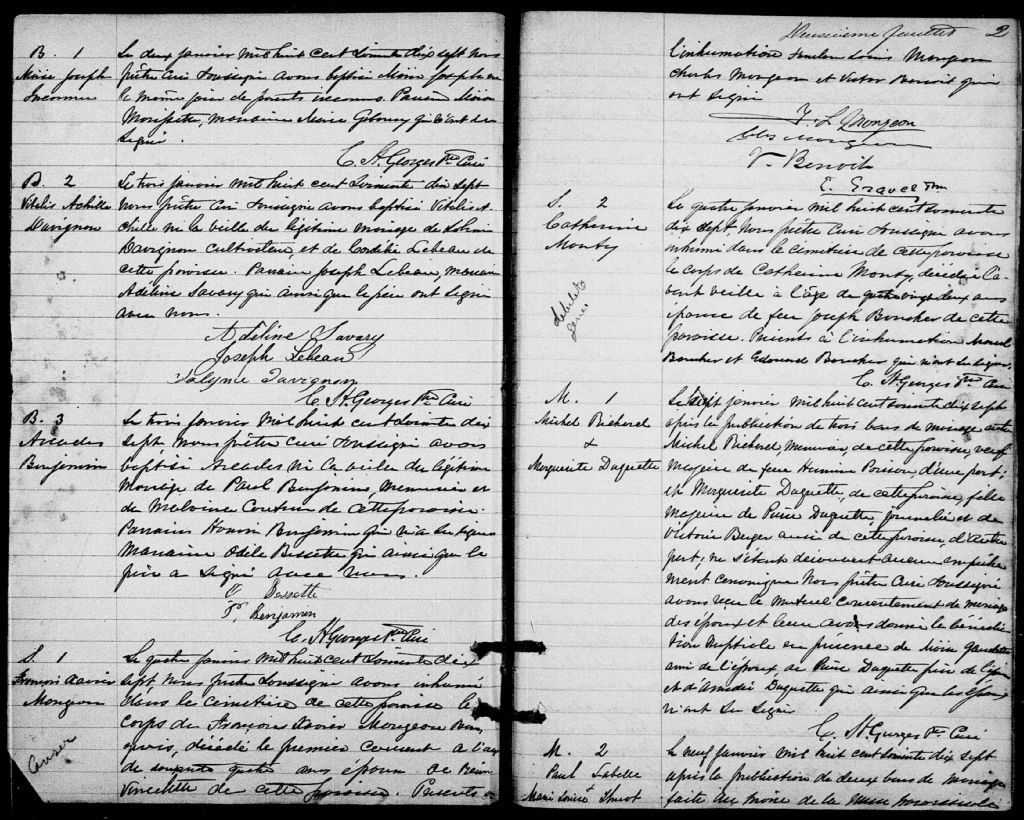 B. 1
Marie Joseph
Inconnu
Le deux janvier mil huit cent soixante dix sept nous
prêtre curé soussigné avons baptisé Marie Joseph né
le même jour de parents inconnus. Parrain
marraine Marie qui n'ont su
signer.
C. St. Georges Ptre Curé
B. 2
Vitalis Achille
Davignon
Le trois janvier mil huit cent soixante dix sept
nous prêtre curé soussigné avons baptisé Vitalis A-
chille né la veille du légitime mariage de
Davignon cultivateur, et de Cordélie Lebeau de
cette paroisse. Parrain Joseph Lebeau, marraine
Adéline Savary qui ainsi que le père ont signé
avec nous.
Adéline Savary
Joseph Lebeau
Davignon
C. St. Georges Ptre Curé
B. 3
Arcades
Benjamin
Le trois janvier mil huit cent soixante dix
sept nous prêtre curé soussigné avons
baptisé Arcades né la veille du légitime
mariage de Paul Benjamin, menuisier et
de Malvina Couture de cette paroisse.
Parrain Honoré Benjamin qui n'a su signer
Marraine Odile Bessette qui ainsi que le
père a signé avec nous.
O Bessette
P. Benjamin
C. St. Georges Ptre Curé
S. 1
François Xavier
Mongeon
Le quatre janvier mil huit cent soixante dix
sept nous prêtre soussigné avons inhumé
dans le cimetière de cette paroisse le
corps de François Xavier Mongeon
décédé le premier courant à l'age
de soixante quatre ans époux de
Vincelette de cette paroisse. Présents à
Deuxième feuillet 2
l'inhumation Louis Mongeon
Charles Mongeon et Victor Benoit qui
ont signé
F. L. Mongeon
Chs Mongeon
V. Benoit
E. Gravel
S. 2
Catherine
Monty
Le quatre janvier mil huit cent soixante
dix sept nous prêtre curé soussigné avons
inhumé dans le cimetière de cette paroisse
le corps de Catherine Monty décédée l'a-
vant veille à l'âge de quatre vingt deux ans
épouse de feu Joseph Boucher de cette
paroisse. Présents à l'inhumation
Boucher et Edouard Boucher qui n'ont su signer.
C. St. Georges Ptre Curé
M. 1
Michel Bicherel
&
Marguerite Daguette
Le sept janvier mil huit cent soixante dix sept
après la publication de trois bans de mariage entre
Michel Bicherel, de cette paroisse, veuf
majeur de feu d'une part;
et Marguerite Daguette, de cette paroisse, fille
majeure de Pierre Daguette, journalier et de
Victoire Berger aussi de cette paroisse, d'autre
part; ne s'étant découvert aucun empêche
ment canonique nous prêtre curé soussigné
avons reçu le mutuel consentement de mariage
des époux et leur avons donné la bénédic
tion nuptiale en présence de
ami de l'époux, de Pierre Daguette père de l'épouse
et d'Amédée Daguette qui ainsi que les époux
n'ont su signer
C. St. Georges Ptre Curé
M. 2
Paul Labelle
&
Marie Louise
Le neuf janvier mil huit cent soixante dix sept
après la publication de deux bans de mariage
faite au prône de la messe paroissiale